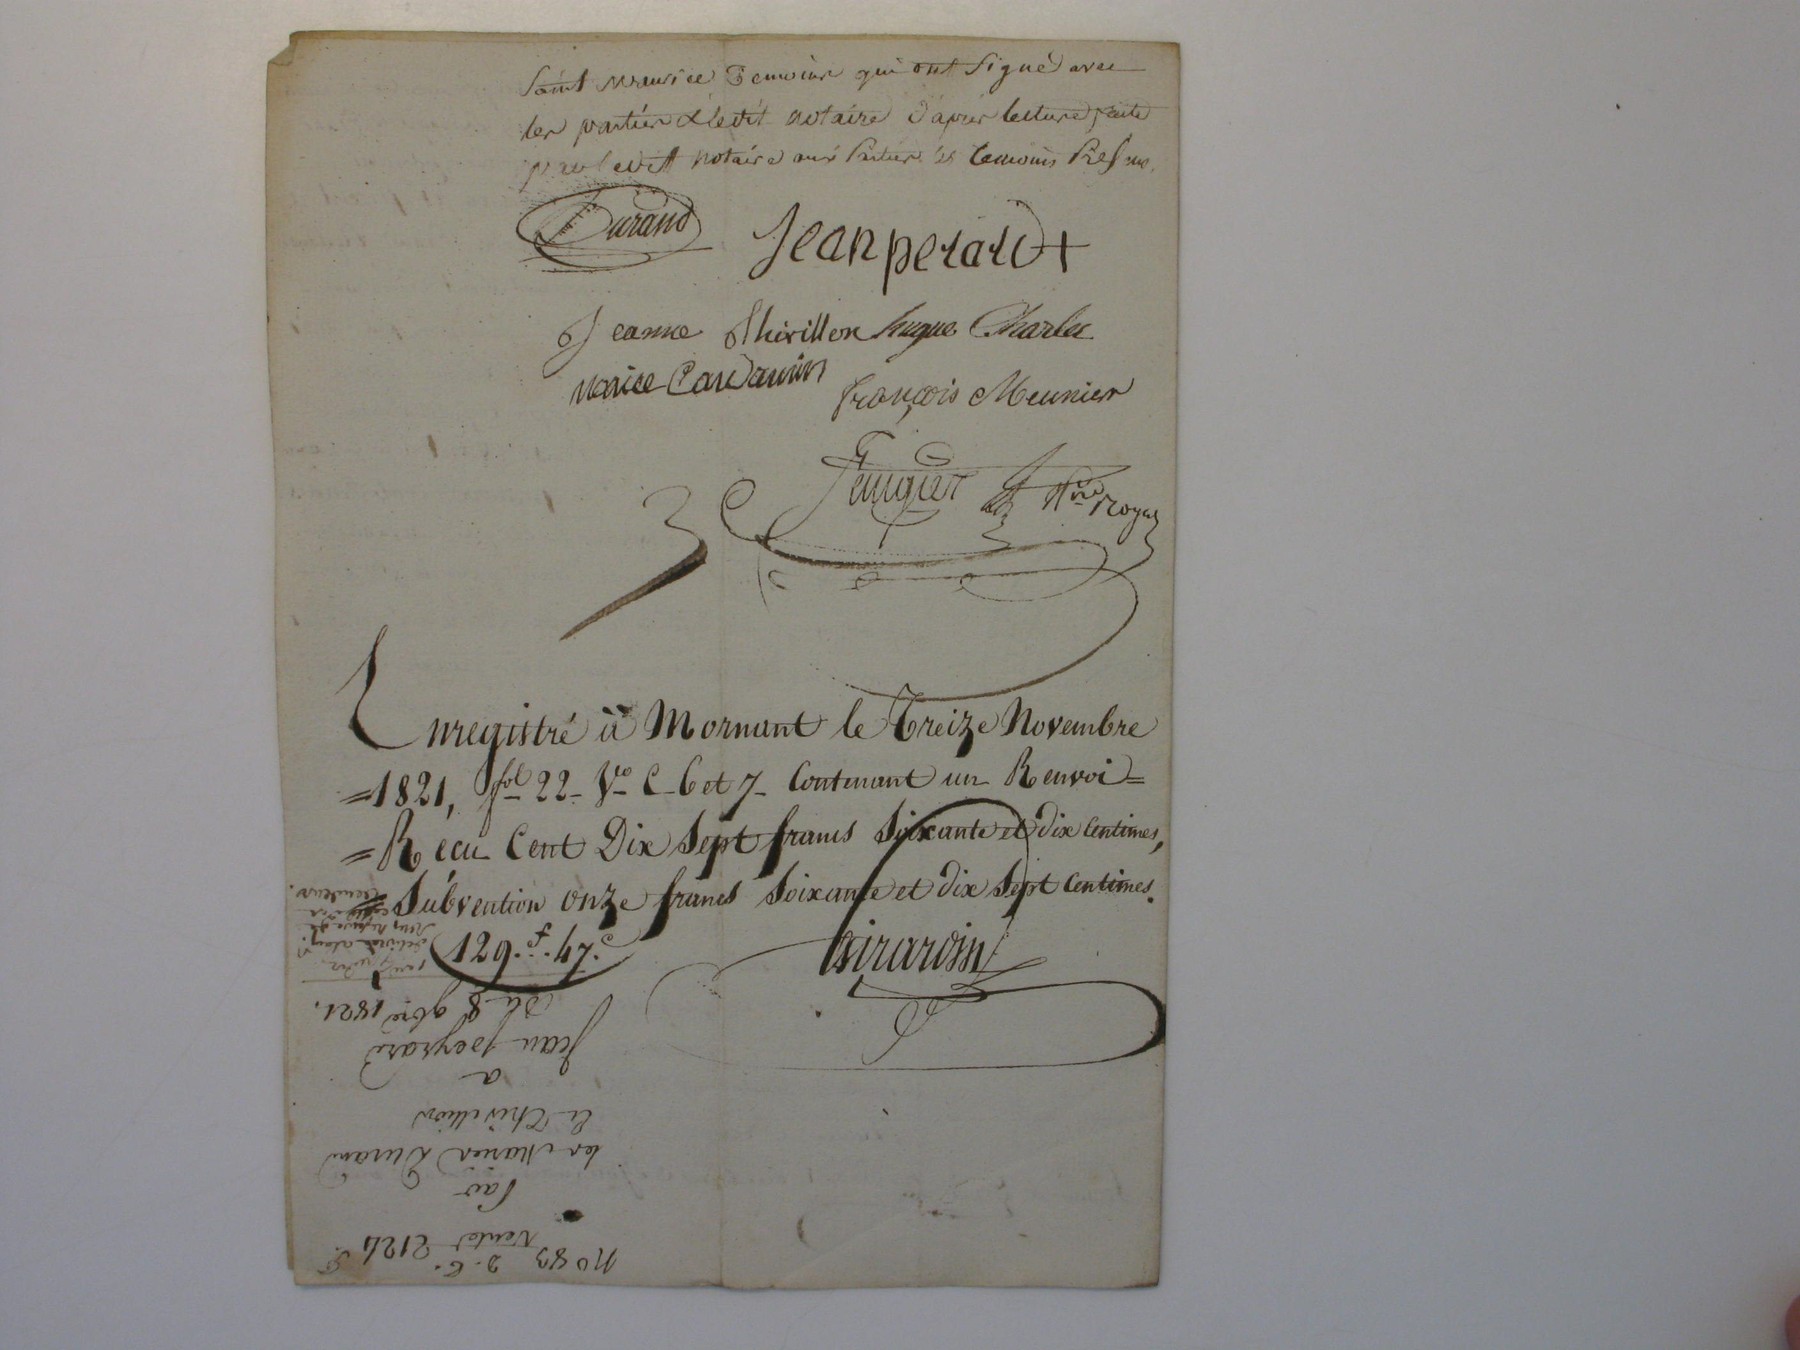 Saint Maurice Temoins qui ont Signé avec
les parties & ledit notaire d'apres lecture faite
par ledit Notaire aux Parties & temoins
Durand
Jean perard
Jeanne Thivillon hugue Charles
François Meunier
Nre Royal
Enregistré à Mornant le Treize Novembre
=1821, fol 22 Vo C 6 et 7 Contenant un Renvoi=
=Recu Cent Dix Sept francs Soixante et dix Centimes,
Subvention onze francs Soixante et dix Sept Centimes.
129.f.47.c
Girardin
no 83
Vente 2124
Par
les Maries Durand
et Thivillion
a
Jean peyrard
du 8 9bre 1821.